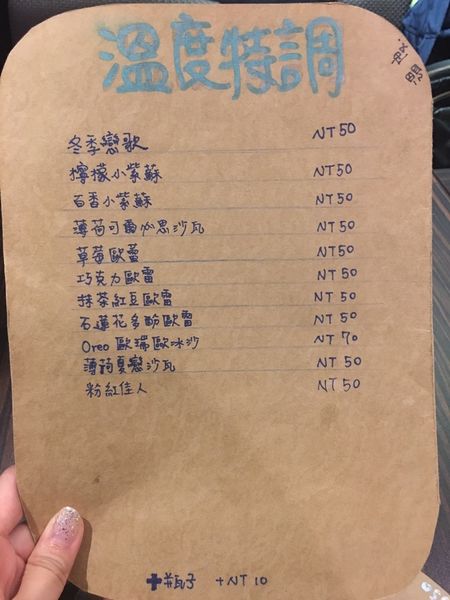 溫度特調
冬季戀歌 NT 50
檸檬小紫蘇 NT 50
百香小紫蘇 NT 50
薄荷可爾必思沙瓦 NT 50
草莓歐蕾 NT 50
巧克力歐雷 NT 50
抹茶紅豆歐雷 NT 50
石蓮花多酚歐雷 NT 50
Oreo 歐瑞歐冰沙 NT 70
薄荷夏戀沙瓦 NT 50
粉紅佳人 NT 50
+瓶子 +NT 10